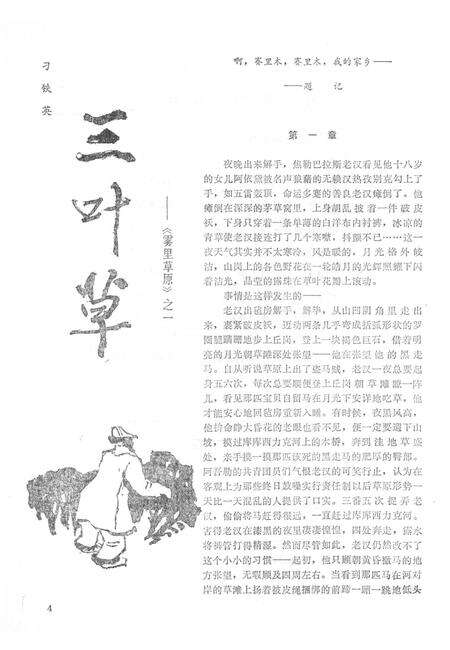 刁铁英
三叶草
——《雾里草原》之一
啊，赛里木，赛里木，我的家乡——
——题 记
第 一 章
夜晚出来解手，焦勒巴拉斯老汉看见他十八岁
的女儿阿依黛被名声狼藉的无赖汉热孜别克勾上了
手，如五雷轰顶，命运多蹇的善良老汉瘫倒了。他
瘫倒在深深的茅草窝里，上身胡乱披着一件破皮
袄，下身只穿着一条单薄的白洋布内衬裤，冰凉的
青草使老汉接连打了几个寒噤，抖颤不已……这一
夜天气其实并不太寒冷，风是暖的，月光格外皎
洁，山岗上的各色野花在一轮皓月的光辉照耀下闪
着洁光，晶莹的露珠在草叶花瓣上滚动。
事情是这样发生的——
老汉出毡房解手，解毕，从山凹阴角里走出
来，裹紧破皮袄，迈动两条几乎弯成括弧形状的罗
圈腿蹒跚地步上丘岗，登上一块褐色巨石，借着明
亮的月光朝草滩深处张望——他在张望他的黑走
马。自从听说草原上出了盗马贼，老汉一夜总要起
身五六次，每次总要顺便登上丘岗朝草滩瞅一阵
儿，看见那匹宝贝自留马在月光下安详地吃草，他
才能安心地回毡房重新入睡。有时候，夜黑风高，
他价命睁大昏花的老眼也看不见，便一定要遛下山
坡，摸过库库西力克河上的木桥，奔到洼地草盛
处，亲手摸一摸那匹该死的黑走马的肥厚的臀部。
阿吾勒的共青团员们气恨老汉的可笑行止，认为在
客观上为那些终日鼓噪实行责任制以后草原形势一
天比一天混乱的人提供了口实。三番五次捉弄老
汉，偷偷将马赶得很远，一直赶过库库西力克河。
害得老汉在漆黑的夜里凄凄惶惶，四处奔走，露水
将裤管打得精湿。然而尽管如此，老汉仍然改不了
这个小小的习惯——起初，他只顾朝黄昏撒马的地
方张望，无暇顾及四周左右。当看到那匹马在河对
岸的草滩上扬着被皮绳捆绑的前蹄一颠一跳地低头
4